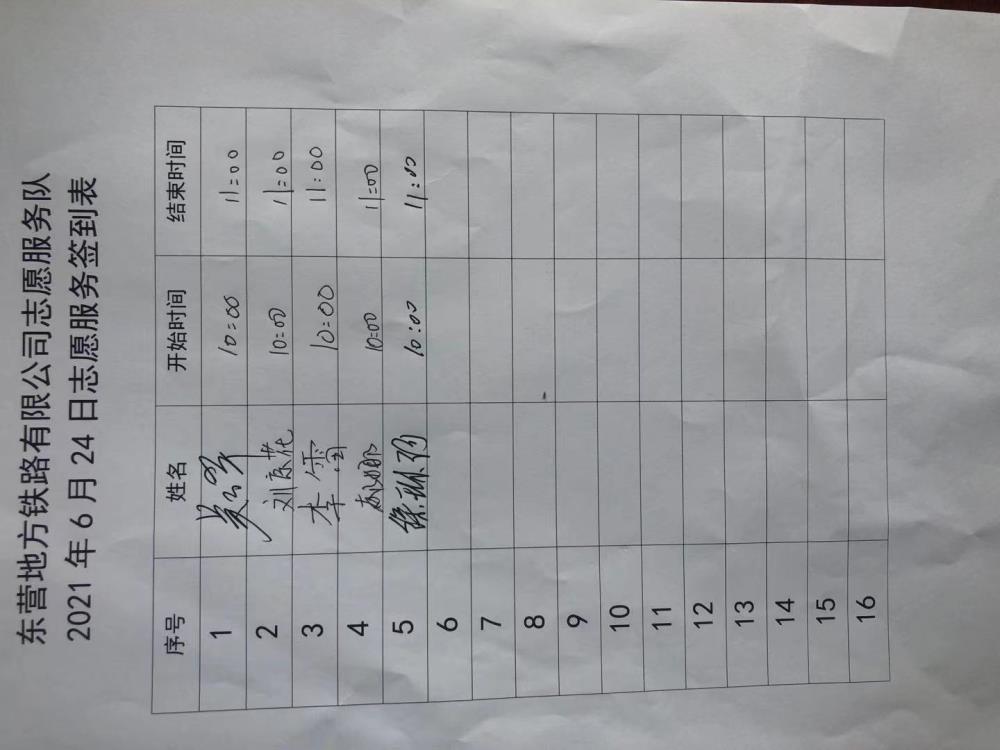 东营地方铁路有限公司志愿服务队
2021 年 6 月 24 日志愿服务签到表
序号 姓名 开始时间 结束时间
1 10:00 11:00
2 刘庆花 10:00 11:00
3 李雷 10:00 11:00
4 10:00 11:00
5 10:00 11:00
6
7
8
9
10
11
12
13
14
15
16